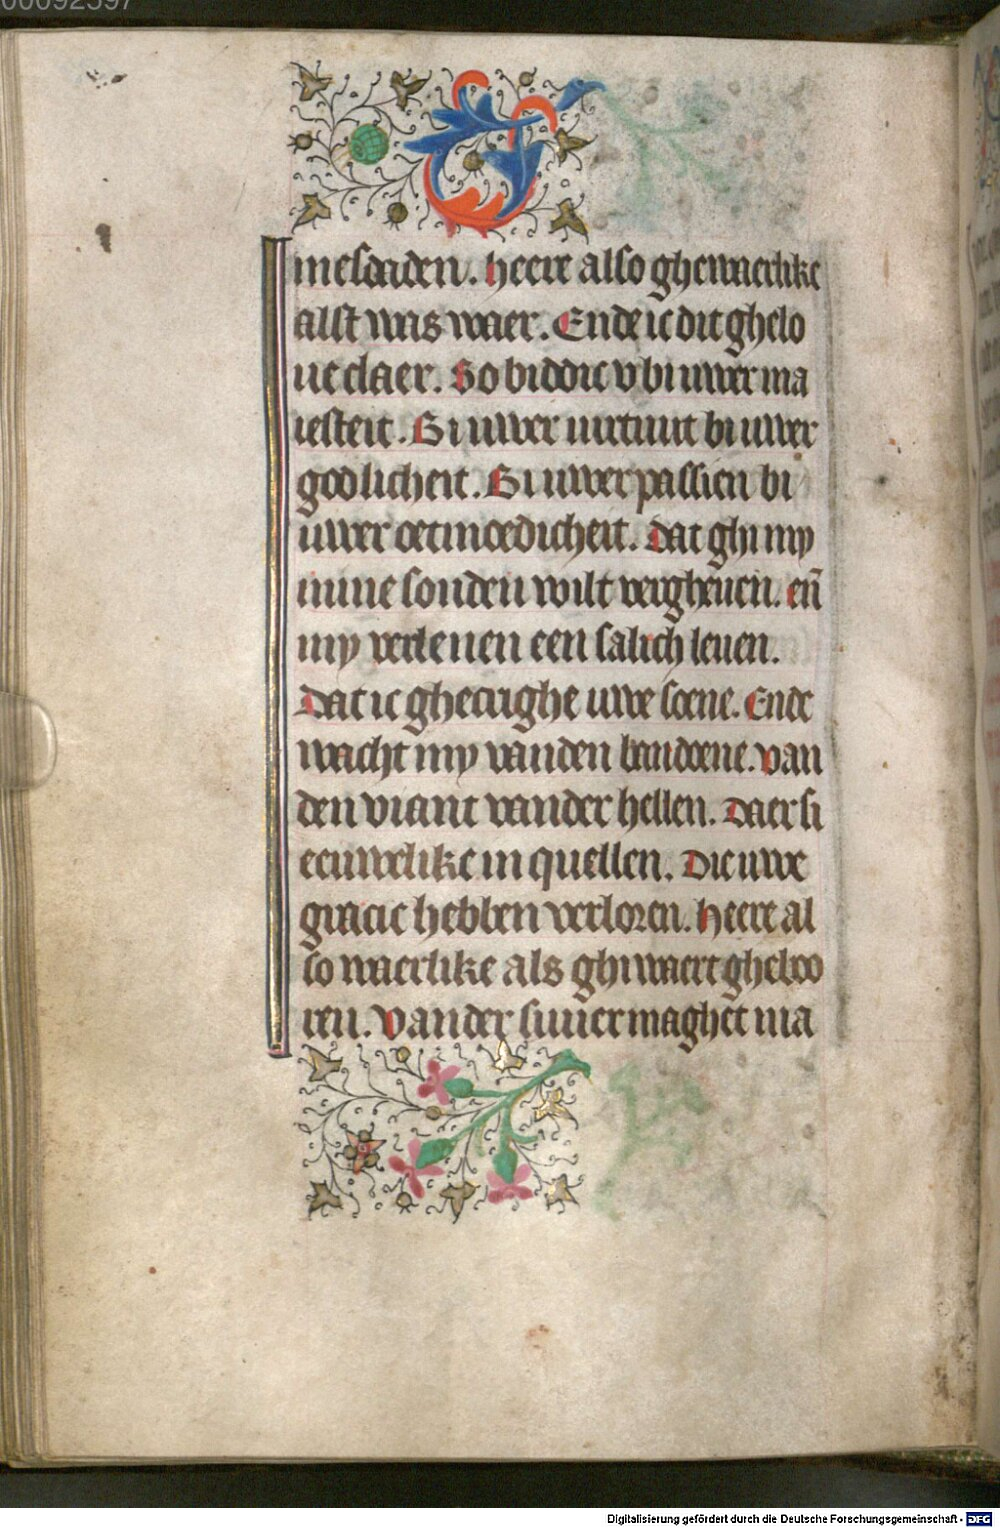 00092597
mesdaden. heere also ghewaerlike
alst was waer. Ende ic dit ghelo
ue claer. So biddic v bi uwer ma
iesteit. Bi uwer uirtuut bi uwer
godlicheit. Bi uwer passien bi
uwer oetmoedicheit. Dat ghi my
mine sonden wilt vergheuen. eñ
my verlenen een salich leuen.
Dat ic ghecrighe uwe soene. Ende
wacht my vanden bandoene. van
den viant vander hellen. Daer si
eeuwelike in quellen. Die uwe
gracie hebben verloren. heere al
so waerlike als ghi waert gheboo
ren. Vander suuer maghet ma
Digitalisierung gefördert durch die Deutsche Forschungsgemeinschaft - DFG